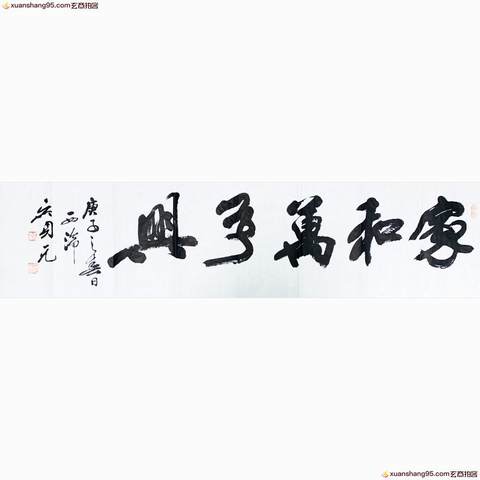 xuanshang95.com玄商拍网
家和萬事興
庚子之春日
西沛
xuanshang95.com玄商拍网